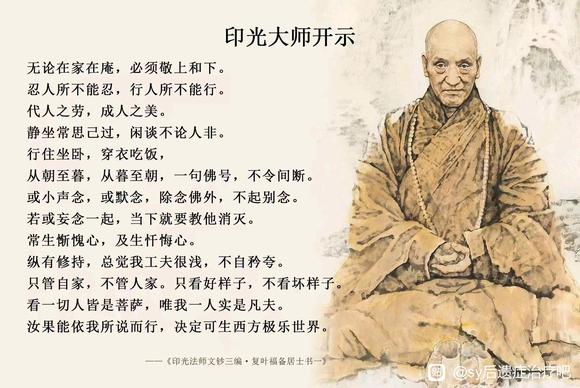 印光大师开示
无论在家在庵，必须敬上和下。
忍人所不能忍，行人所不能行。
代人之劳，成人之美。
静坐常思己过，闲谈不论人非。
行住坐卧，穿衣吃饭，
从朝至暮，从暮至朝，一句佛号，不令间断。
或小声念，或默念，除念佛外，不起别念。
若或妄念一起，当下就要教他消灭。
常生惭愧心，及生忏悔心。
纵有修持，总觉我工夫很浅，不自矜夸。
只管自家，不管人家。只看好样子，不看坏样子。
看一切人皆是菩萨，唯我一人实是凡夫。
汝果能依我所说而行，决定可生西方极乐世界。
——《印光法师文钞三编·复叶福备居士书一》
@sy后遗症治疗吧